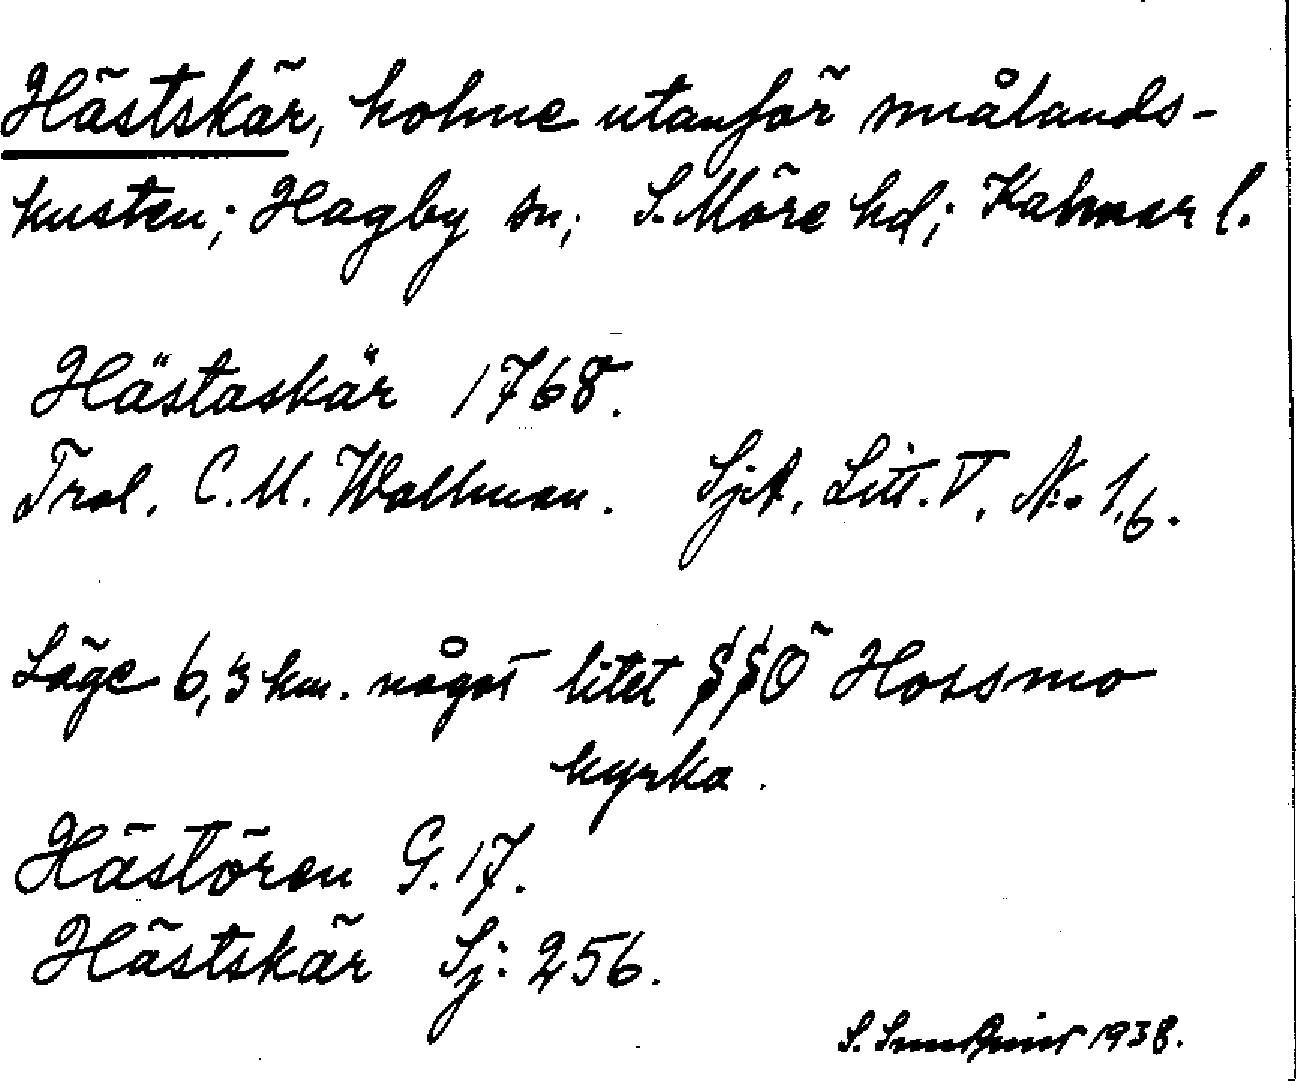 Hästskär, holme utanför smålands-
kusten; Hagby sn; S. Möre hd; Kalmar l.
Hästaskär 1768.
Trol. C. M. Wallman. SjA. Litt. V. No 1,6.
Läge 6,3 km. något litet SSÖ Hossmo
kyrka.
Hästören G. 17.
Hästskär Sj: 256.
S. Sundquist 1938.